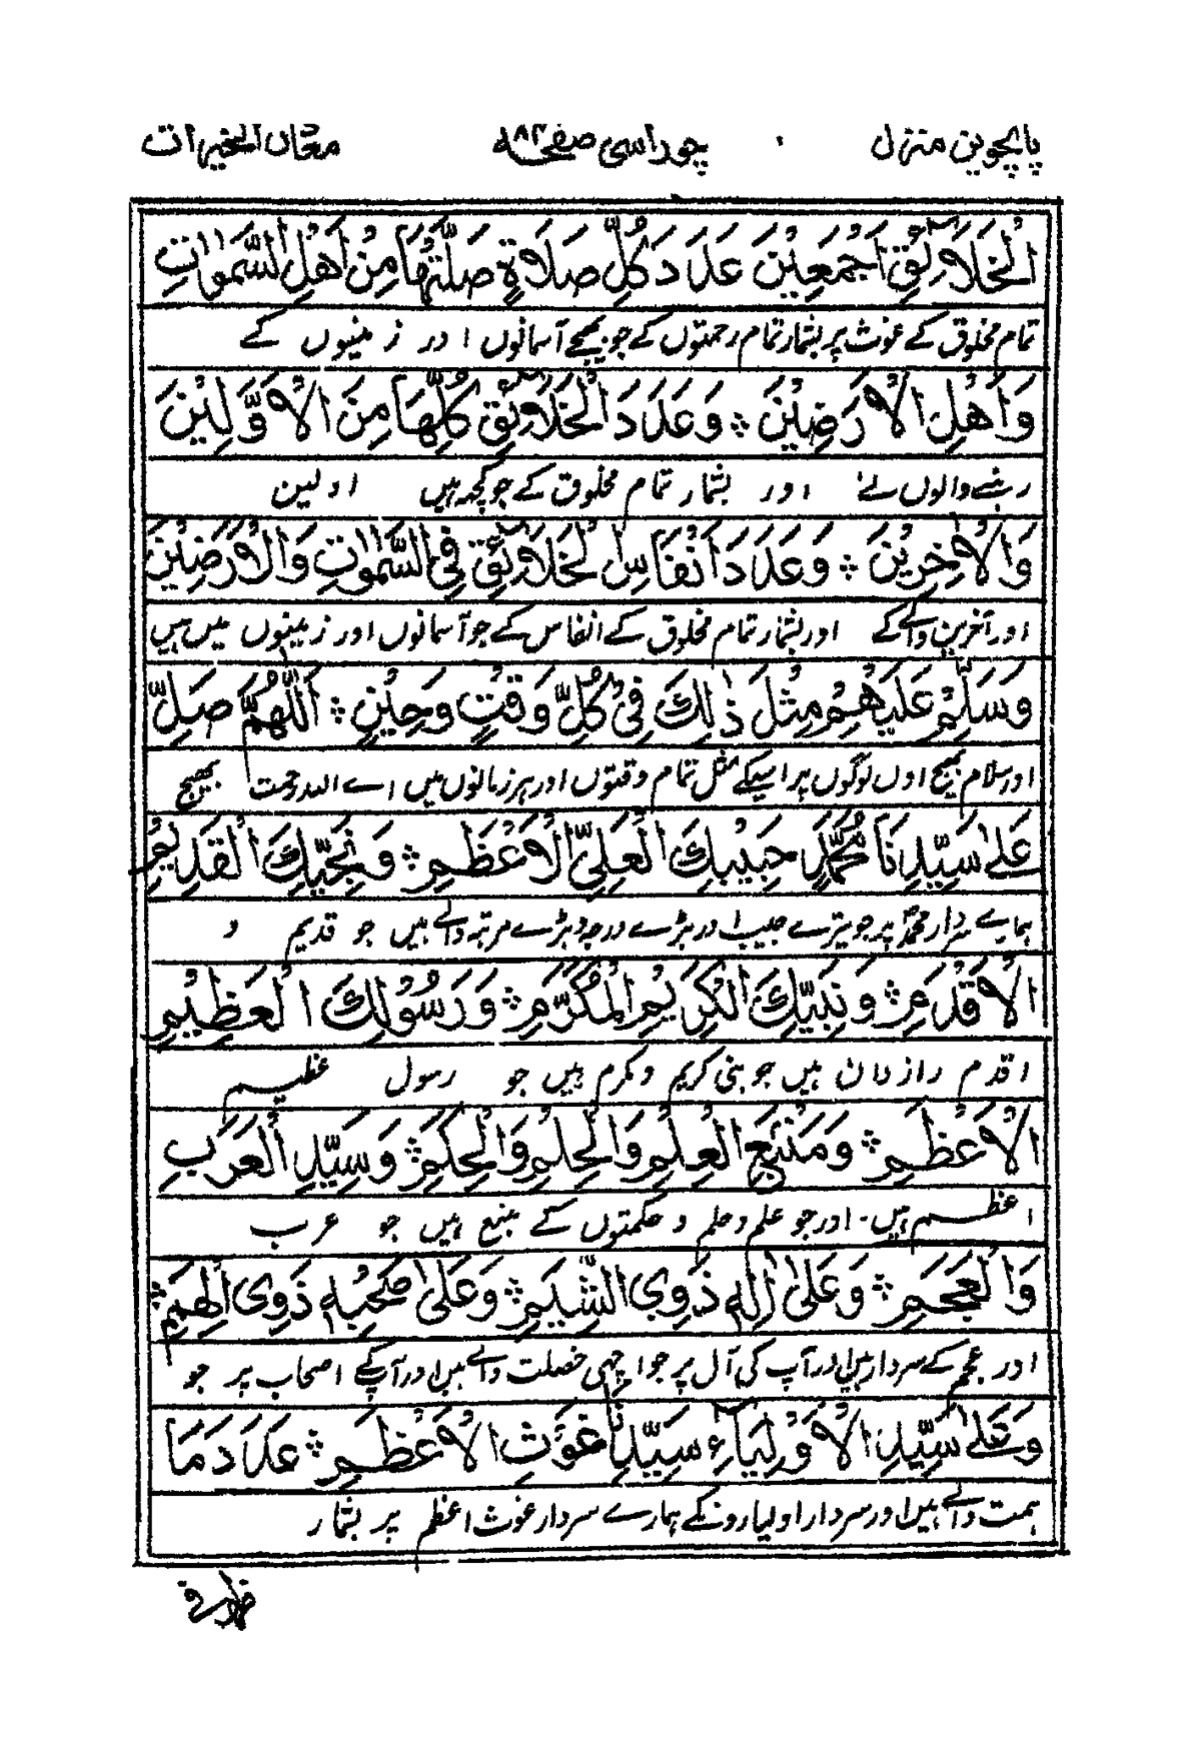 پانچویں منزل چوراسی صفحہ ۸۴ معدن الخیرات
الْخَلَائِقِ اَجْمَعِيْنَ عَدَدَ كُلِّ صَلَاةٍ صَلَّتْهَا مِنْ اَهْلِ السَّمٰوَاتِ
تمام مخلوق کے غوث پر بشمار تمام رحمتوں کے جو بھیجے آسمانوں اور زمینوں کے
وَاَهْلِ الْاَرَضِيْنَ ؞ وَعَدَدَ الْخَلَائِقِ كُلِّهَا مِنَ الْاَوَّلِيْنَ
رہنے والوں نے اور بشمار تمام مخلوق کے جو کچھ ہیں اولین
وَالْاٰخِرِيْنَ ؞ وَعَدَدَ اَنْفَاسِ الْخَلَائِقِ فِي السَّمٰوَاتِ وَالْاَرَضِيْنَ
اور آخرین والے کے اور بشمار تمام مخلوق کے انفاس کے جو آسمانوں اور زمینوں میں ہیں
وَسَلِّمْ عَلَيْهِمْ مِثْلَ ذٰلِكَ فِيْ كُلِّ وَقْتٍ وَحِيْنٍ ؞ اَللّٰهُمَّ صَلِّ
اور سلام بھیج اون لوگوں پر اسیکے مثل تمام وقتوں اور ہر زمانوں میں اے اللہ رحمت بھیج
عَلٰى سَيِّدِنَا مُحَمَّدٍ حَبِيْبِكَ الْعَلِيِّ الْاَعْظَمِ ؞ وَنَجِيِّكَ الْقَدِيْمِ
ہمارے سردار محمدؐ پر جو تیرے حبیب اور بڑے درجہ و بڑے مرتبہ والے ہیں جو قدیم و
الْاَقْدَمِ ؞ وَنَبِيِّكَ الْكَرِيْمِ الْمُكَرَّمِ ؞ وَرَسُوْلِكَ الْعَظِيْمِ
اقدم رازدان ہیں جو نبی کریم و مکرم ہیں جو رسول عظیم
الْاَعْظَمِ ؞ وَمَنْبَعِ الْعِلْمِ وَالْحِلْمِ وَالْحِكَمِ ؞ وَسَيِّدِ الْعَرَبِ
اعظم ہیں۔ اور جو علم و حلم و حکمتوں کے منبع ہیں جو عرب
وَالْعَجَمِ ؞ وَعَلٰى اٰلِهٖ ذَوِي الشِّيَمِ ؞ وَعَلٰى صَحْبِهٖ ذَوِي الْهِمَمِ ؞
اور عجم کے سردار ہیں اور آپ کی آل پر جو اچھی خصلت والے ہیں اور آپکے اصحاب پر جو
وَعَلٰى سَيِّدِ الْاَوْلِيَاءِ سَيِّدِنَا غَوْثِ الْاَعْظَمِ ؞ عَدَدَ مَا
ہمت والے ہیں اور سردار اولیاروں کے ہمارے سردار غوث اعظم پر بشمار